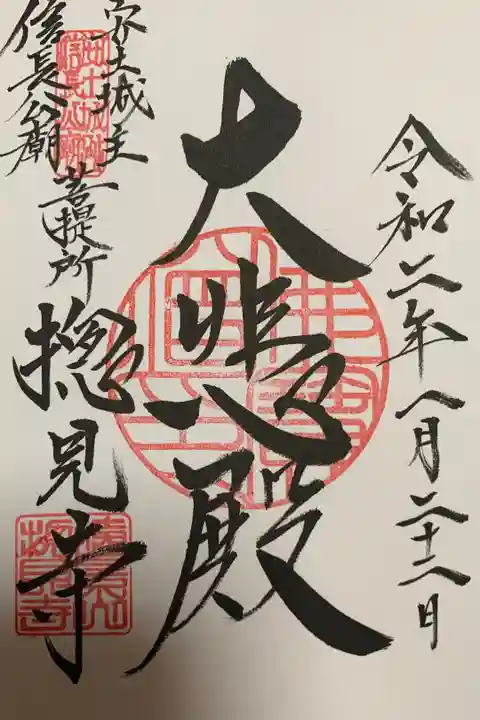 令和二年八月二十二日
大悲殿
安土城主
信長公廟
菩提所
摠見寺